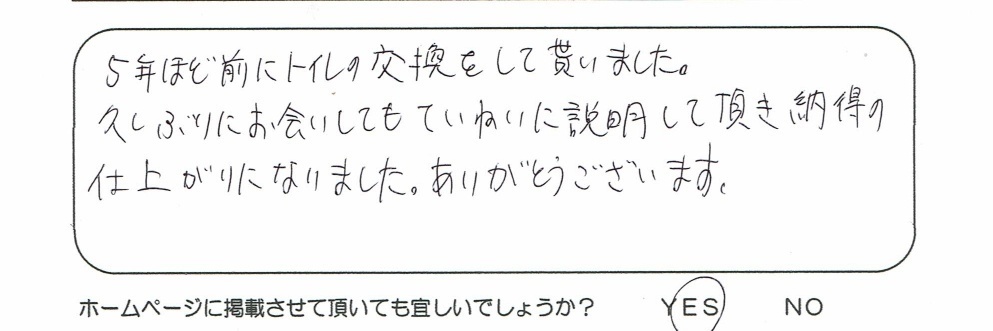 5年ほど前にトイレの交換をして貰いました。
久しぶりにお会いしてもていねいに説明して頂き納得の
仕上がりになりました。ありがとうございます。
ホームページに掲載させて頂いても宜しいでしょうか？ YES NO